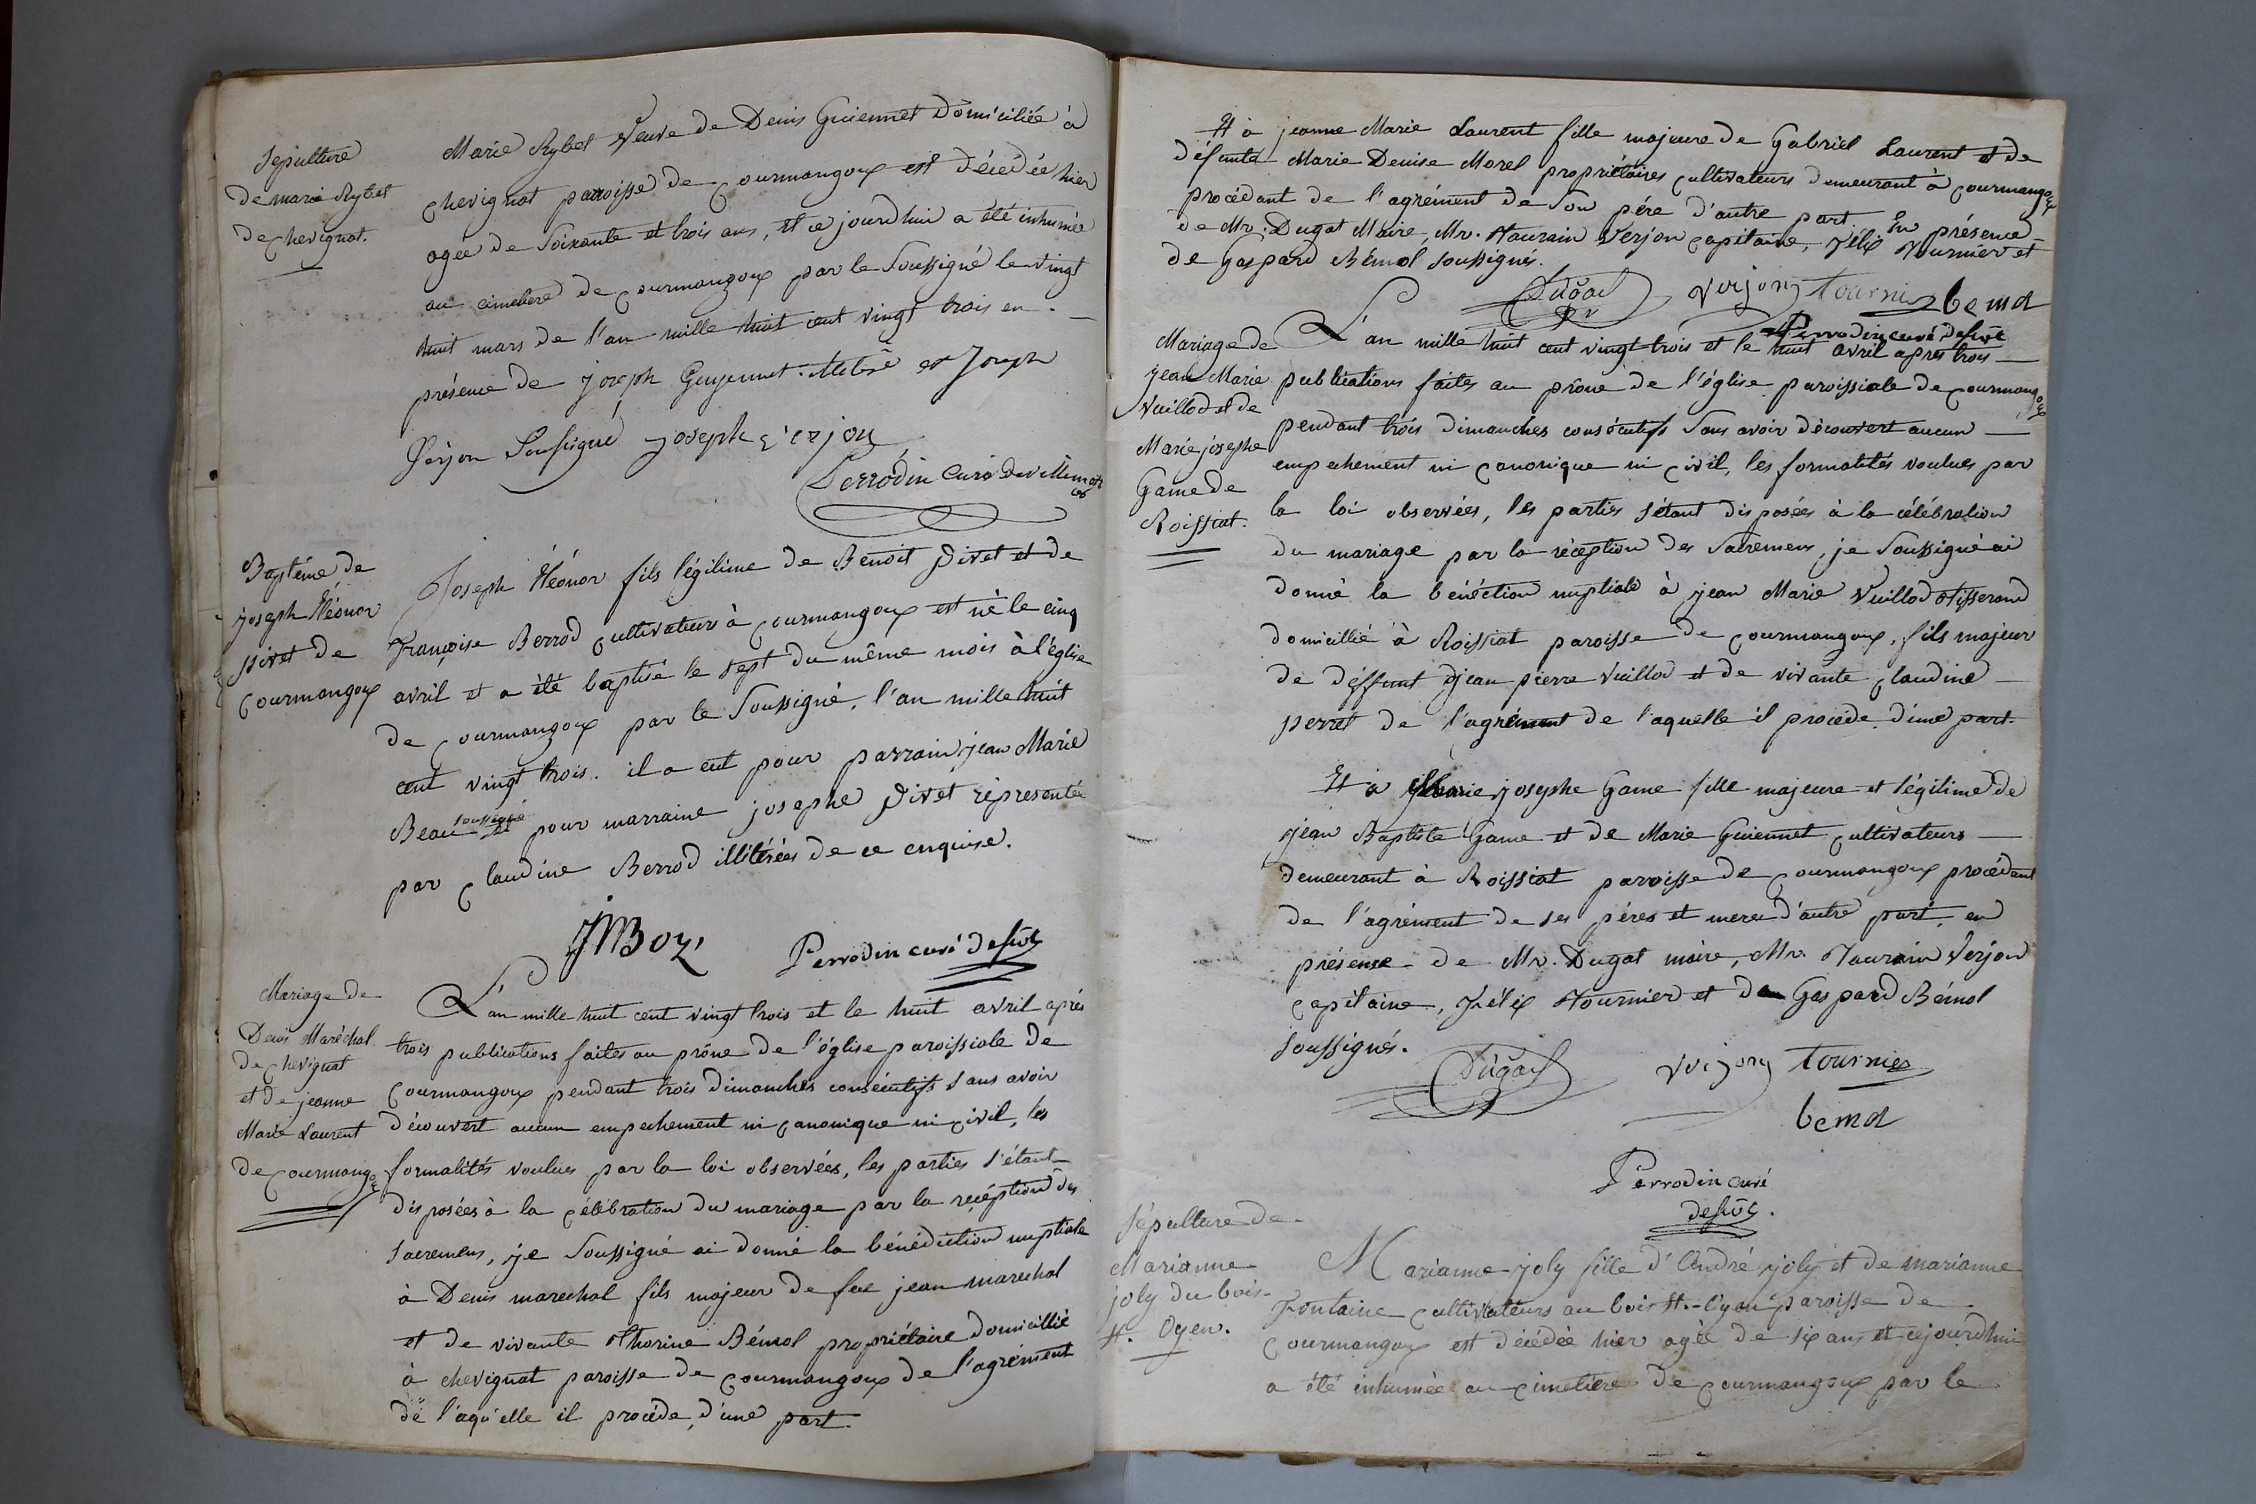 Sepulture
de marie Rybet
de chevignat.
Marie Rybet Veuve de Denis Guiennet Domiciliée à
chevignat paroisse de Courmangoux est décédée hier
agée de Soixante et trois ans, et ce jourdhui a été inhumée
au cimetiere de Courmangoux par le Soussigné le vingt
huit mars de l'an mille huit cent vingt trois en
présence de joseph Guyennet et Joseph
Verjon Soussigné joseph Verjon
Perrodin Curé de villemotier
Baptême de
joseph Eléonor
pivet de
Courmangoux
Joseph Eléonor fils légitime de Benoit Pivet et de
Françoise Berrod cultivateur à Courmangoux est né le cinq
avril et a été baptisé le sept du même mois à l'église
de Courmangoux par le Soussigné, l'an mille huit
cent vingt trois. il a eut pour parrain jean Marie
Beau soussigné et pour marraine josephe Pivet réprésentée
par Claudine Berrod illitérées de ce enquise.
JMBoz
Perrodin curé desst
Mariage de
Denis Maréchal
de Chevignat
et de jeanne
Marie Laurent
de Courmangoux
L'an mille huit cent vingt trois et le huit avril après
trois publications faites au prône de l'église paroissiale de
Courmangoux pendant trois dimanches consécutifs sans avoir
découvert aucun empechement ni canonique ni civil, les
formalités voulues par la loi observées, les parties s'étant
disposées à la célébration du mariage par la reçéption des
sacremens, je Soussigné ai donné la bénédiction nuptiale
à Denis marechal fils majeur de feu jean marechal
et de vivante Thorine Bémol propriétaire domicillié
à chevignat paroisse de Courmangoux de l'agrément
de l'aqu'elle il procéde, d'une part.
Et à jeanne Marie Laurent fille majeure de Gabriel Laurent et de
défunte Marie Denise Morel propriétaires cultivateurs demeurant à Courmangoux
procédant de l'agrément de son pére d'autre part En présence
de Mr. Dugat Maire, Mr. Taurain Verjon capitaine, Félix Tournier et
de Gaspard Bémol soussignés.
Dugat verjon tournier bemol
Perrodin curé desst
Mariage de
jean Marie
Vuillod et de
Marie josephe
Game de
Roissiat.
L'an mille huit cent vingt trois et le huit avril après trois
publications faites au prône de l'église paroissiale de Courmangoux
pendant trois dimanches consécutifs sans avoir découvert aucun
empechement ni canonique ni civil, les formalités voulues par
la loi observées, les parties s'étant disposées à la célébration
du mariage par la réception des Sacremens, je Soussigné ai
donné la bénéction nuptiale à jean Marie Vuillod tisserand
domicillié à Roissiat paroisse de Courmangoux, fils majeur
de déffunt jean pierre Vuillod et de vivante Claudine
perret de l'agrément de l'aquelle il procéde d'une part.
Et à Marie josephe Game fille majeure et légitime de
jean Baptiste Game et de Marie Guiennet cultivateurs
demeurant à Roissiat paroisse de Courmangoux procédant
de l'agrément de ses péres et meres d'autre part, en
présence de Mr. Dugat maire, Mr. Taurain Verjon
capitaine, Félix Tournier et de Gaspard Bémol
soussignés.
Dugat verjon tournier
bemol
Perrodin curé
desst.
Sépulture de
Marianne
joly du bois
St. Oyen.
Marianne joly fille d'André joly et de marianne
Fontaine cultivateurs au bois St.-Oyen paroisse de
Courmangoux est décédée hier agée de six ans et cejourdhui
a été inhumée au cimetiere de Courmangoux par le